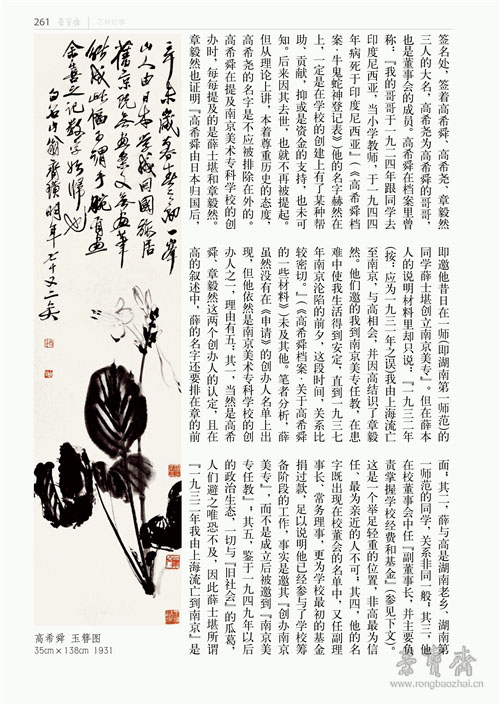 261 荣宝斋 艺林忆事
签名处，签着高希舜、高希尧、章毅然
三人的大名，高希尧为高希舜的哥哥，
也是董事会的成员。高希舜在档案里曾
称：『我的哥哥于一九二四年跟同学去
印度尼西亚，当小学教师，于一九四四
年病死于印度尼西亚』（《高希舜档
案·牛鬼蛇神登记表》）他的名字赫然在
上，一定是在学校的创建上有了某种帮
助、贡献，抑或是资金的支持，也未可
知。后来因其去世，也就不再被提起。
但从理论上讲，本着尊重历史的态度，
高希尧的名字是不应被排除在外的。
高希舜在提及南京美术专科学校的创
办时，每每提及的是薛士堪和章毅然。
章毅然也证明『高希舜由日本归国后，
即邀他昔日在一师（即湖南第一师范）的
同学薛士堪创立南京美专』。但在薛本
人的说明材料里却只说：『一九三二年
（按：应为一九三一年之误）我由上海流亡
至南京，与高相会，并因高结识了章毅
然。他们邀的我到南京美专任教，在患
难中使我生活得到安定，直到一九三七
年南京沦陷的前夕，这段时间，关系比
较密切。』（《高希舜档案·关于高希舜
的一些材料》）未及其他。笔者分析，薛
虽然没有在《申请》的创办人名单上出
现，但他依然是南京美术专科学校的创
办人之一，理由有五：其一，当然是高希
舜、章毅然这两个创办人的认定，且在
高的叙述中，薛的名字还要排在章的前
面；其二，薛与高是湖南老乡、湖南第
一师范的同学，关系非同一般；其三，他
在校董事会中任『副董事长，并主要负
责掌握学校经费和基金』（参见下文）。
这是一个举足轻重的位置，非高最为信
任、最为亲近的人不可；其四，他的名
字既出现在校董会的名单中，又任副理
事长、常务理事，更为学校最初的基金
捐过款，足以说明他已经参与了学校筹
备阶段的工作，事实是邀其『创办南京
美专』，而不是成立后被邀到『南京美
专任教』；其五，鉴于一九四九年以后
的政治生态，一切与『旧社会』的瓜葛，
人们避之唯恐不及，因此薛士堪所谓
『一九三二年我由上海流亡到南京』是
辛未岁
白石山翁齐璜明年七十又二矣
高希舜 玉簪图
35cm×138cm 1931
荣宝斋
www.rongbaozhai.cn